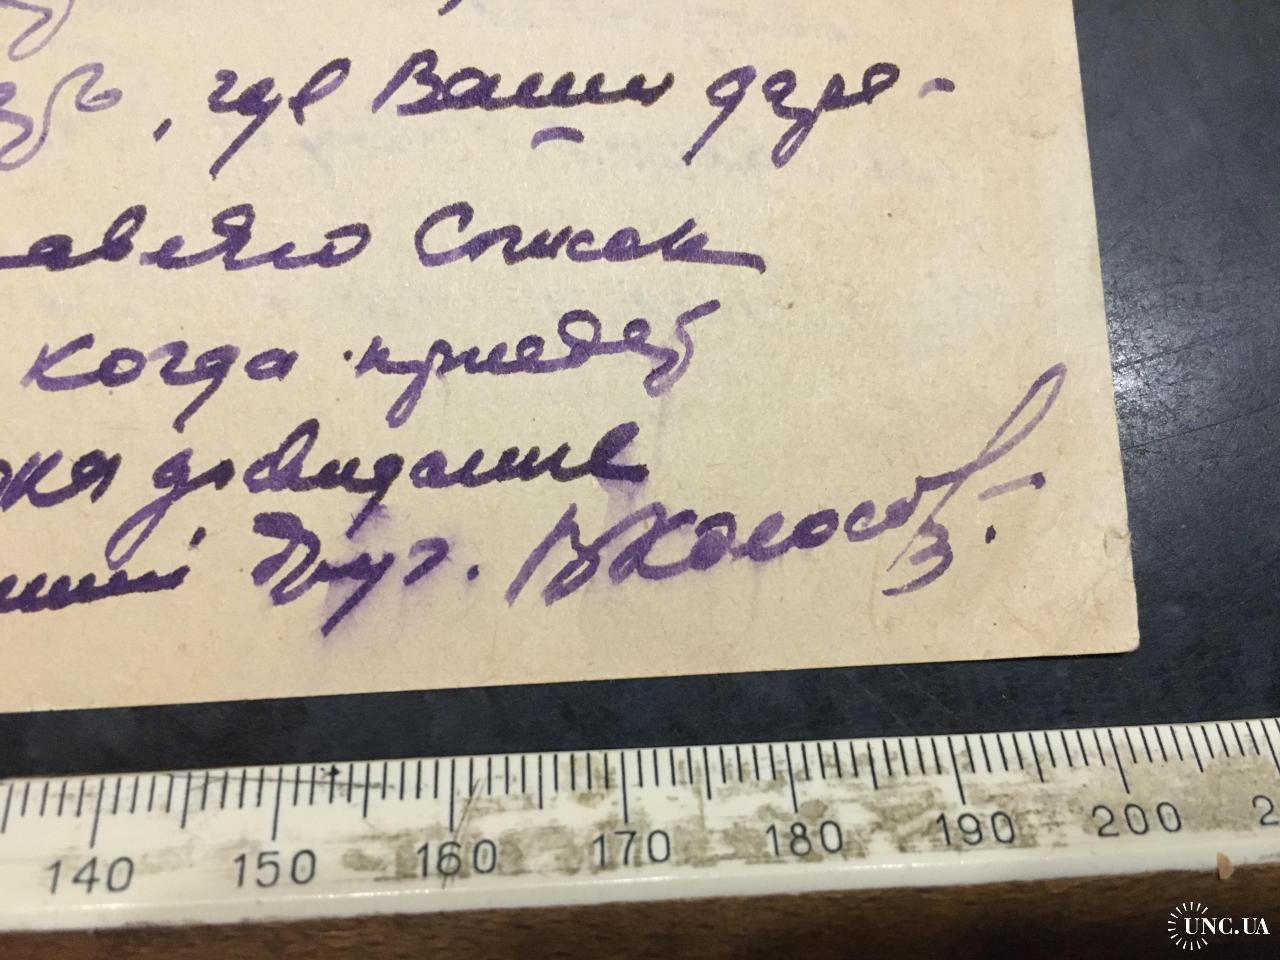 , где Ваши дзре-
авляю Список
когда приедет
пока досвидание
друг. В Колосов
140 150 160 170 180 190 200 2
UNC.UA